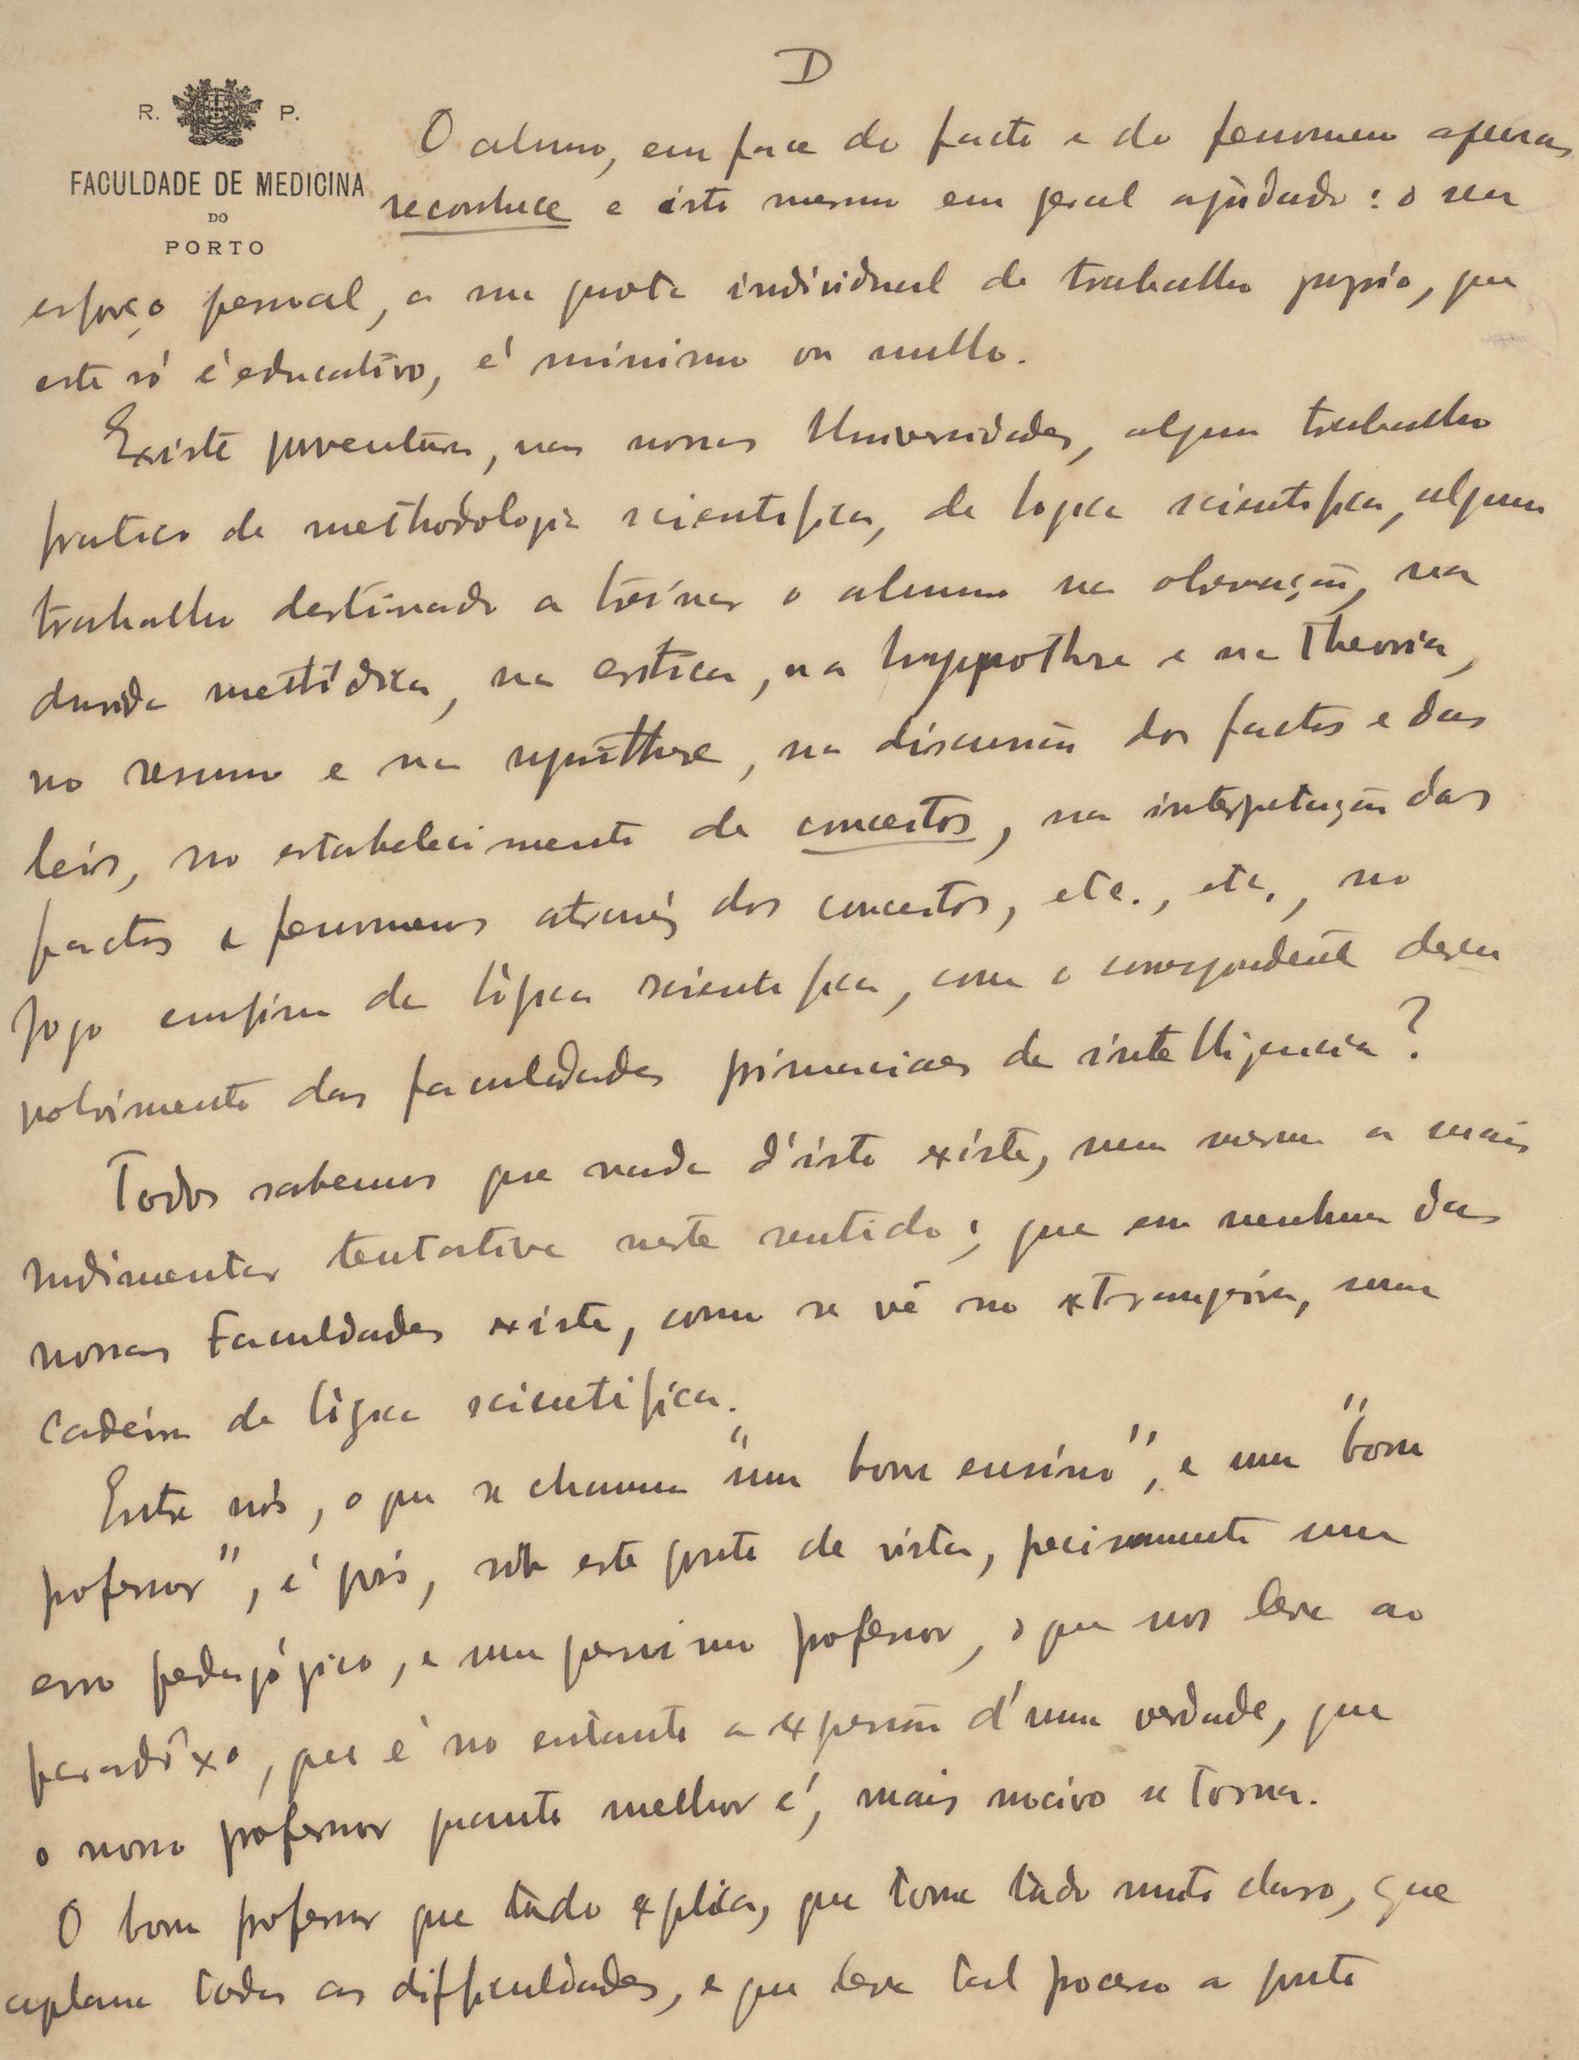 D
R. P.
FACULDADE DE MEDICINA
DO
PORTO
O alumno, em face do facto e do fenomeno apenas
reconhece e isto mesmo em geral ajudado: o seu
esforço pessoal, a sua quota individual de trabalho proprio, que
este só é educativo, é minimo ou nullo.
Existe porventura, nas nossas Universidades, algum trabalho
pratico de methodologia scientifica, de logica scientifica, algum
trabalho destinado a treinar o alumno na observação, na
duvida methódica, na critica, na hyppothese e na Theoria,
no resumo e na synthese, na discussão dos factos e das
leis, no estabelecimento de conceitos, na interpretação dos
factos e fenomenos através dos conceitos, etc., etc., no
jogo emfim da lógica scientifica, com o correspondente desen
volvimento das faculdades primaciaes da intelligencia?
Todos sabemos que nada d'isto existe, nem mesmo a mais
rudimentar tentativa neste sentido; que em nenhuma das
nossas Faculdades existe, como se vê no extrangeiro, uma
Cadeira de lógica scientifica.
Entre nós, o que se chama "um bom ensino", e um "bom
professor", é pois, sob este ponto de vista, precisamente um
erro pedagógico, e um pessimo professor, o que nos leva ao
paradôxo, que é no entanto a expressão d'uma verdade, que
o nosso professor quanto melhor é, mais nocivo se torna.
O bom professor que tudo explica, que torna tudo muito claro, que
aplana todas as difficuldades, e que leva tal processo a ponto